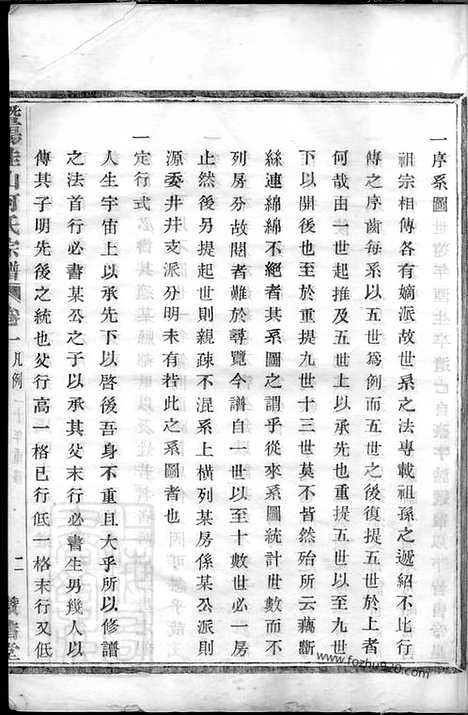 一序系圖
祖宗相傳各有嫡派故世系之法專載祖孫之遞紹不比行
傳之序齒每系以五世爲例而五世之後復提五世於上者
何哉由一世起推及五世以承先也重提五世以至九世
下以開後也至於重提九世十三世莫不皆然殆所云藕斷
絲連綿綿不絕者其系圖之謂乎從來系圖統計世數而不
列房分故閱者難於尋覽今譜自一世以至十數世必一房
止然後另提起世則親疎不混系上橫列某房係某公派則
源委井井支派分明未有若此之系圖者也
一定行式
人生宇宙上以承先下以啓後吾身不重且大乎所以修譜
之法首行必書某公之子以承其父末行必書生男幾人以
傳其子明先後之統也父行高一格已行低一格末行又低
暨陽 山何氏宗譜 卷一 凡例 二
foxhu920.com